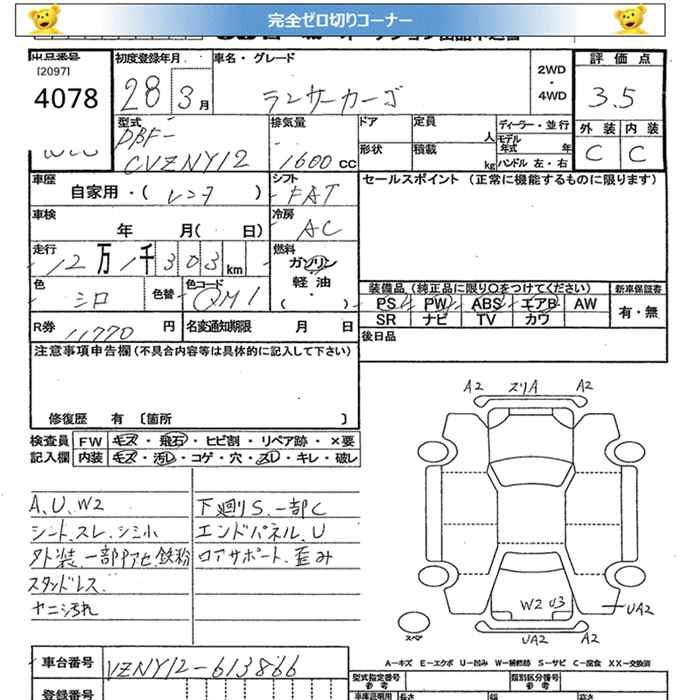 完全ゼロ切りコーナー
出品番号
[2097]
4078
初度登録年月
28 3月
車名・グレード
ランサーカーゴ
2WD
・
4WD
評価点
3.5
外装 内装
C C
型式
DBF-
CVZNY12
排気量
1600 cc
ドア 定員 人
形状 積載 kg
ディーラー・並行
モデル年式 年
ハンドル 左・右
車歴
自家用・( レンタ )
シフト
FAT
セールスポイント (正常に機能するものに限ります)
車検
年 月( 日)
冷房
AC
走行
12万1千303km
燃料
ガソリン
軽油
・( )
色
シロ
色替
色コード
QM1
装備品(純正品に限り○をつけてください)
新車保証書
PS PW ABS エアB AW
SR ナビ TV カワ
有・無
R券 11770 円
名変通知期限 月 日
後日品
注意事項申告欄(不具合内容等は具体的に記入して下さい)
修復歴 有 〔箇所 〕
検査員 FW キズ・飛石・ヒビ割・リペア跡・×要
記入欄 内装 キズ・汚レ・コゲ・穴・スレ・キレ・破レ
A、U、W2
シート、スレ、シミ小
外装、一部アセ、鉄粉
スタッドレス
ヤニ汚れ
下廻りS、一部C
エンドパネル、U
ロアサポート、歪み
A2 スリA A2
W2 U3
UA2
UA2 A2
スペア
A－キズ E－エクボ U－凹み W－補修跡 S－サビ C－腐食 XX－交換済
車台番号 VZNY12-613866
登録番号
型式指定番号
参考
類別区分番号
参考
車庫証明用
長さ 幅 高さ